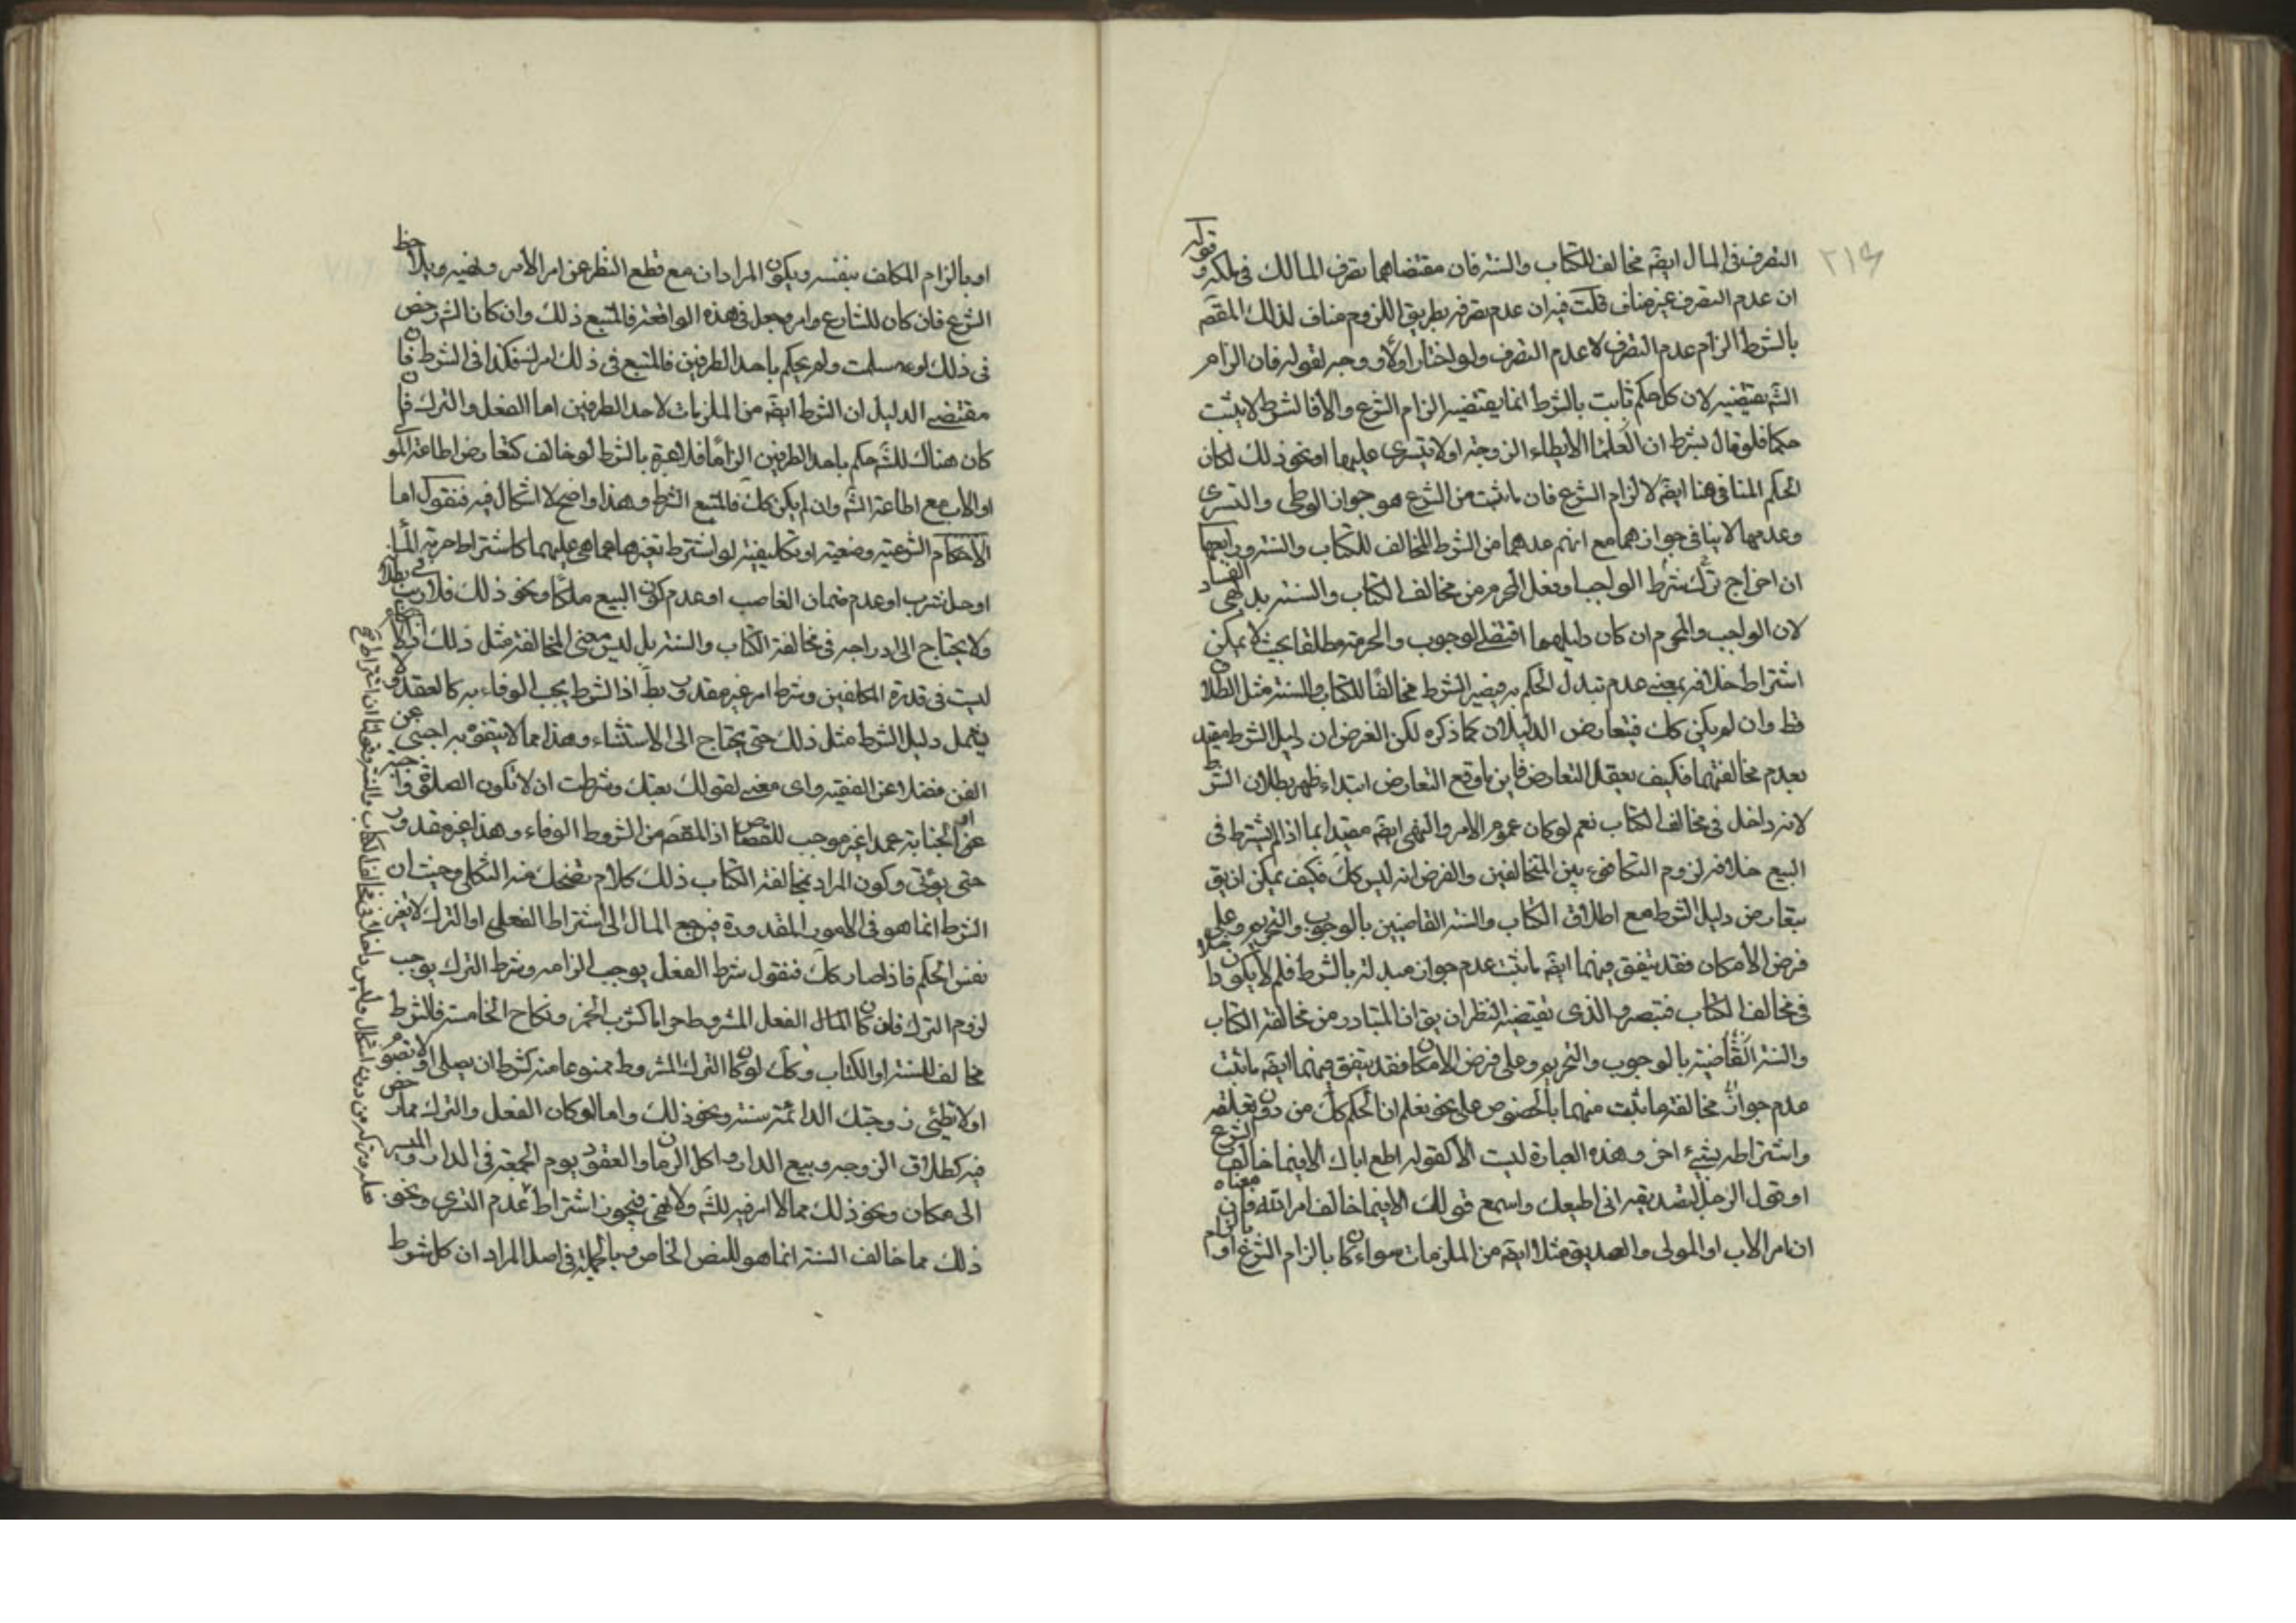 ٢١٤
التصرف في المال ايضً مخالف للكتاب والسنة فان مقتضاهما تصرف المالك في ملكه وقوله
ان عدم التصرف غير مناف قلت فيه ان عدم تصرفه بطريق اللزوم مناف لذلك المقصَ
بالشرط الزام عدم التصرف لا عدم التصرف ولو اختارا ولا وجه لقوله فان الزام
الشَ يقتضيه لان كل حكم ثابت بالشرط انما يقتضيه الزام الشرع والا فالشرط لا يثبت
حكما فلو قال بشرط ان لا يطاء الزوجة او لا يتسرى عليها او نحو ذلك لكان
الحكم المنافي هنا ايضً لالزام الشرع فان ما ثبت من الشرع هو جواز الوطى والتسرى
وعدمها لا ينافي جوازهما مع انهم عدهما من الشرط المخالف للكتاب والسنة ورابعها
ان اخراج شرط ترك الواجب او فعل المحرم من مخالف الكتاب والسنة بديهي الفساد
لان الواجب والمحرم ان كان دليلهما اقتضى الوجوب والحرمة مطلقا بحيث لا يمكن
اشتراط خلافه بمعنى عدم تبدل الحكم به فيصير الشرط مخالفًا للكتاب والسنة مثل الطلاق
قط وان لم يكن كك فيتعارض الدليلان كما ذكره لكن الغرض ان دليل الشرط مقيد
بعدم مخالفتهما فكيف يعقل التعارض فاين ما وقع التعارض ابتداء ظهر بطلان الشرط
لانه داخل في مخالف الكتاب نعم لو كان عموم الامر والنهي ايضً مقيدا بما اذا لم يشترط في
البيع خلافه لزوم التكافؤ بين المتخالفين والفرض انه ليس كك فكيف يمكن ان يق
بتعارض دليل الشرط مع اطلاق الكتاب والسنة القاضيين بالوجوب والتحريم وعلى
فرض الامكان فقد يتفق فيهما ايضً ما ثبت عدم جواز مبدلته بالشرط فلم لا يكون داخلا
في مخالف الكتاب فتبصر والذى يقتضيه النظر ان يق ان المتبادر من مخالفة الكتاب
والسنة القاضية بالوجوب والتحريم وعلى فرض الامكان فقد يتفق فيهما ايضً ما ثبت
عدم جواز مخالفته ما ثبت منهما بالخصوص على نحو يعلم ان الحكم كك من دون تعلقه
واشتراطه بشيء اخر وهذه العبارة ليست الا كقوله اطع اباك الا فيما خالف الشرع
او قول الرجل لصديقه اني اطيعك واسمع قولك الا فيما خالف امر الله فان معناه
ان امر الاب او المولى والصديق مثلا ايضً من الملزمات سواء كان بالزام الشرع او بالزام
او بالزام المكلف بنفسه ويكون المراد ان مع قطع النظر عن امر الامر ونهيه ويلاحظ
الشرع فان كان للشارع وامر وجعل في هذه الواقعة فالمتبع ذلك وان كان الشَ رخص
في ذلك لو سلمت ولم يحكم باحد الطرفين فالمتبع في ذلك امره فكذا في الشرط فان
مقتضى الدليل ان الشرط ايضً من الملزمات لاحد الطرفين اما الفعل والترك فان
كان هناك للشَ حكم باحد الطرفين الزامًا فلا عبرة بالشرط لو خالف كتعارض اطاعة المولى
او الاب مع اطاعة الشَ وان لم يكن كك فالمتبع الشرط وهذا واضح لا اشكال فيه فنقول اما
الاحكام الشرعية وضعية او تكليفية لو اشترط تغيرها عما هي عليها كاشتراط حرمة الماء
او حل شرب او عدم ضمان الغاصب او عدم كون البيع ملكًا ونحو ذلك فلا ريب في بطلانه
ولا يحتاج الى ادراجه في مخالفة الكتاب والسنة بل ليس معنى المخالفة مثل ذلك
ليست في قدرة المكلفين وشرط امر غير مقدور بط اذ الشرط يجب الوفاء به كالعقد ولا
يشمل دليل الشرط مثل ذلك حتى يحتاج الى الاستثناء وهذا مما لا يتفوه به اجنبي عن
الفن فضلا عن الفقيه واى معنى لقولك بعتك وشرطت ان لا تكون الصلوة
او الجناية عمدا غير موجب للقصاص اذ المقصَ من الشروط الوفاء وهذا غير مقدور
حتى يؤتى وكون المراد بمخالفة الكتاب ذلك كلام تضحك منه الثكلى وحيث ان
الشرط انما هو في الامور المقدورة فيرجع المال الى اشتراط الفعل او الترك لا تغير
نفس الحكم فاذا صار كك فنقول شرط الفعل يوجب الزامه وشرط الترك يوجب
لزوم الترك فان كان المال الفعل المشروط حراما كشرب الخمر ونكاح الخامسة فالشرط
مخالف للسنة او الكتاب وكك لو كان الترك المشروط ممنوعا منه كشرط ان يصلى او لا تصوم
او لا تطئى زوجتك الدائمة سنة ونحو ذلك واما لو كان الفعل والترك مما رخص
فيه كطلاق الزوجه وبيع الدار واكل الرمان والعقود يوم الجمعة في الدار والمسير
الى مكان ونحو ذلك مما لا امر فيه للشَ ولا نهى فيجوز اشتراط عدم التسرى ونحو
ذلك مما خالف السنة انما هو للنص الخاص وبالجملة في اصل المراد ان كل شرط